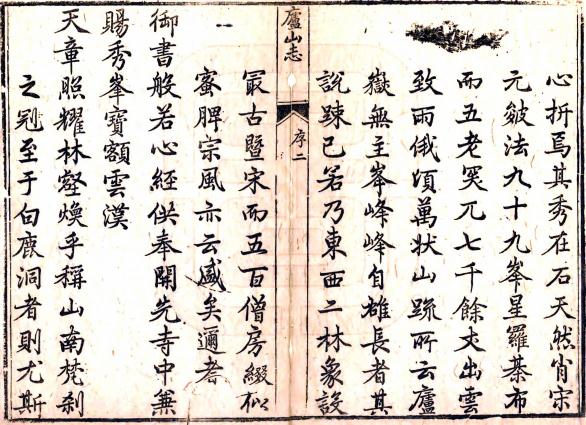 心折焉其秀在石天然肖宋
元皴法九十九峯星羅棊布
而五老突兀七千餘丈出雲
致雨俄頃萬狀山疏所云廬
嶽無主峯峰峰自雄長者其
說踈已若乃東西二林象設
廬山志
序二
最古暨宋而五百僧房綴似
蜜脾宗風亦云盛矣邇者
御書般若心經供奉開先寺中兼
賜秀峯寶額雲漢
天章照耀林壑煥乎稱山南梵刹
之冠至于白鹿洞者則尤斯